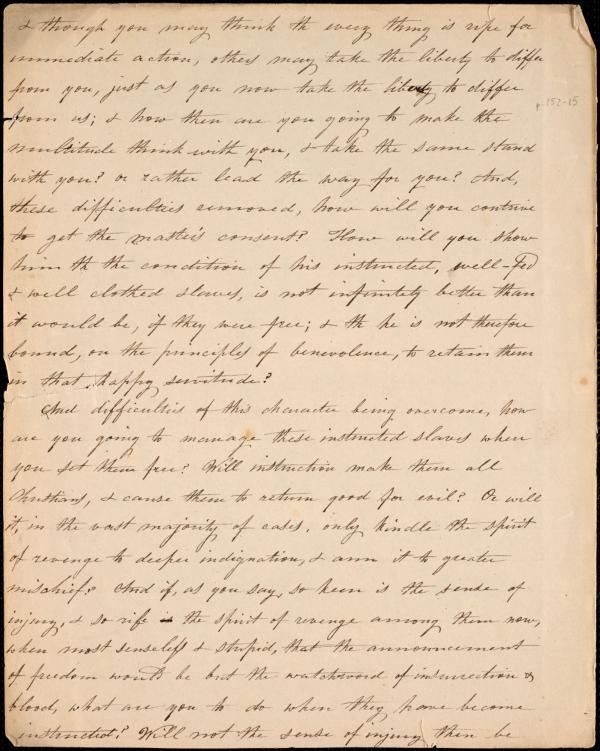 & though you may think th every thing is ripe for
immediate action, others may take the liberty to differ
from you, just as you now take the liberty to differ
from us; & how then are you going to make the
multitude think with you, & take the same stand
with you? or rather lead the way for you? And,
these difficulties removed, how will you contrive
to get the master's consent? How will you show
him th the condition of his instructed, well-fed
& well clothed slaves, is not infinitely better than
it would be, if they were free; & th he is not therefore
bound, on the principles of benevolence, to retain them
in that happy servitude?
And difficulties of this character being overcome, how
are you going to manage these instructed slaves when
you set them free? Will instruction make them all
Christians, & cause them to return good for evil? Or will
it, in the vast majority of cases, only kindle the spirit
of revenge to deeper indignation, & arm it to greater
mischief? And if, as you say, so keen is the sense of
injury, & so rife is the spirit of revenge among them now,
when most senseless & stupid, that the announcement
of freedom would be but the watchword of insurrection &
blood, what are you to do when they have become
instructed? Will not the sense of injury then be